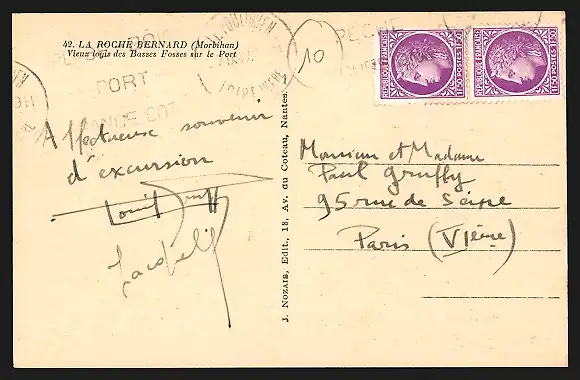 42. LA ROCHE-BERNARD (Morbihan)
Vieux logis des Basses Fosses sur le Port
PORT
10
REPUBLIQUE FRANÇAISE
1F50 POSTES 1F50
REPUBLIQUE FRANÇAISE
1F50 POSTES 1F50
Affectueux souvenir
d'excursion
J. NOZAIS, Edit., 18, Av. du Coteau, Nantes.
Monsieur et Madame
Paul Gruffy
95 rue de Seine
Paris (VIème)